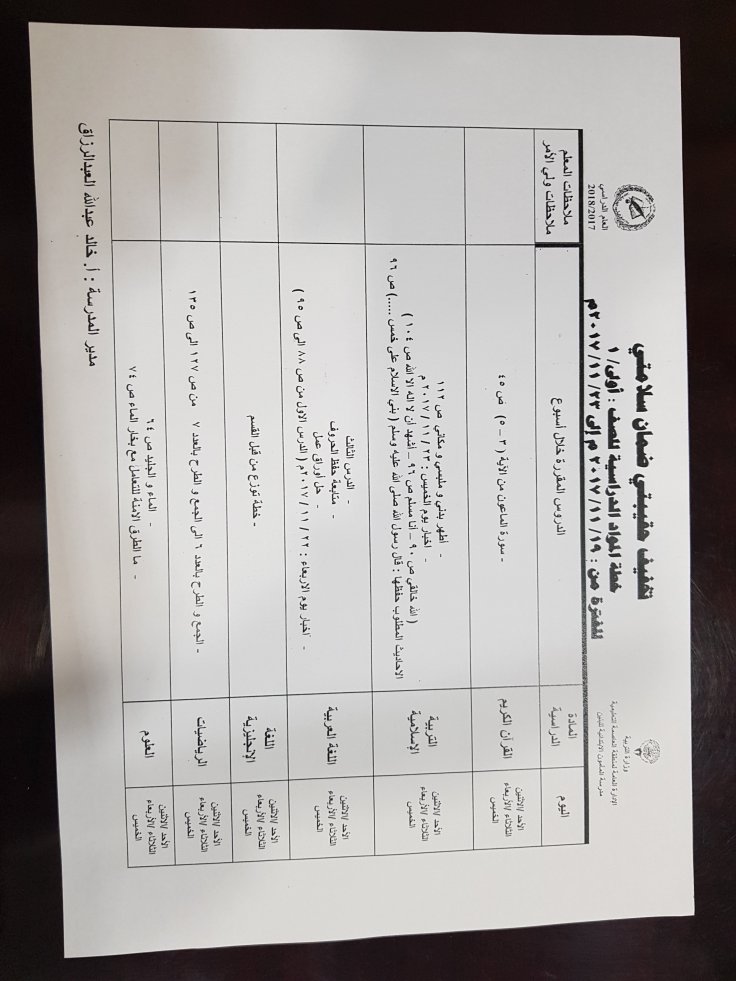 وزارة التربية
الإدارة العامة لمنطقة العاصمة التعليمية
مدرسة المأمون الابتدائية للبنين
تخفيف حقيبتي ضمان سلامتي
خطة المواد الدراسية للصف : أولى/ ١
للفترة من : ١٩ / ١١ / ٢٠١٧ م إلى ٢٣ / ١١ / ٢٠١٧م
العام الدراسي
2018/2017
اليوم
المادة الدراسية
الدروس المقررة خلال أسبوع
ملاحظات المعلم
ملاحظات ولي الأمر
الأحد /الاثنين
الثلاثاء /الأربعاء
الخميس
القرآن الكريم
- سورة الماعون من الآية ( ٣ – ٥ ) ص ٤٥
الأحد /الاثنين
الثلاثاء /الأربعاء
الخميس
التربية
الإسلامية
- أطهر بدني و ملبسي و مكاني ص ١١٢
- اختبار يوم الخميس : ٢٣ / ١١ / ٢٠١٧ م
( الله خالقي ص ٩٠ – أنا مسلم ص ٩٦ – أشهد أن لا اله الا الله ص ١٠٤ )
الاحاديث المطلوب حفظها : قال رسول الله صلى الله عليه وسلم ( بني الاسلام على خمس .....) ص ٩٦
الأحد /الاثنين
الثلاثاء /الأربعاء
الخميس
اللغة العربية
- الدرس الثالث
- متابعة حفظ الحروف
- حل اوراق عمل
- اختبار يوم الاربعاء : ٢٢ / ١١ / ٢٠١٧م ( الدرس الاول من ص ٨٨ الى ص ٩٥ )
الأحد /الاثنين
الثلاثاء /الأربعاء
الخميس
اللغة
الإنجليزية
- خطة توزع من قبل القسم
الأحد /الاثنين
الثلاثاء /الأربعاء
الخميس
الرياضيات
- الجمع و الطرح بالعدد ٦ الى الجمع و الطرح بالعدد ٧ من ص ١٢٧ الى ص ١٣٥
الأحد /الاثنين
الثلاثاء /الأربعاء
الخميس
العلوم
- الماء و الجليد ص ٦٤
- ما الطرق الامنة للتعامل مع بخار الماء ص ٧٤
مدير المدرسة : أ. خالد عبدالله العبدالرزاق